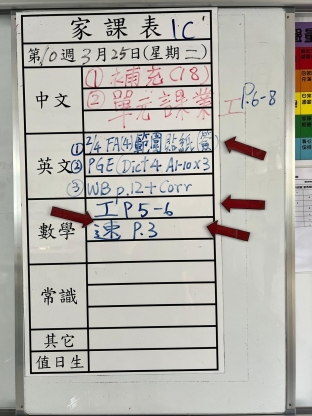 家課表 1C
第10週3月25日(星期二)
中文
① 補充(18)
② 單元課業工P.6-8
英文
① 2/4 FA(4)範圍貼紙(簽)
② PGE(Dict 4 A1-10x3
③ WB p.12+Corr
數學
工P5-6
速 P.3
常識
其它
值日生